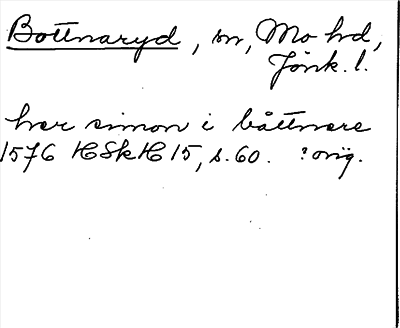 Bottnaryd, sn, Mo hd,
Jönk. l.
her simon i båttnare
1576 HSkH 15, s. 60. ? orig.